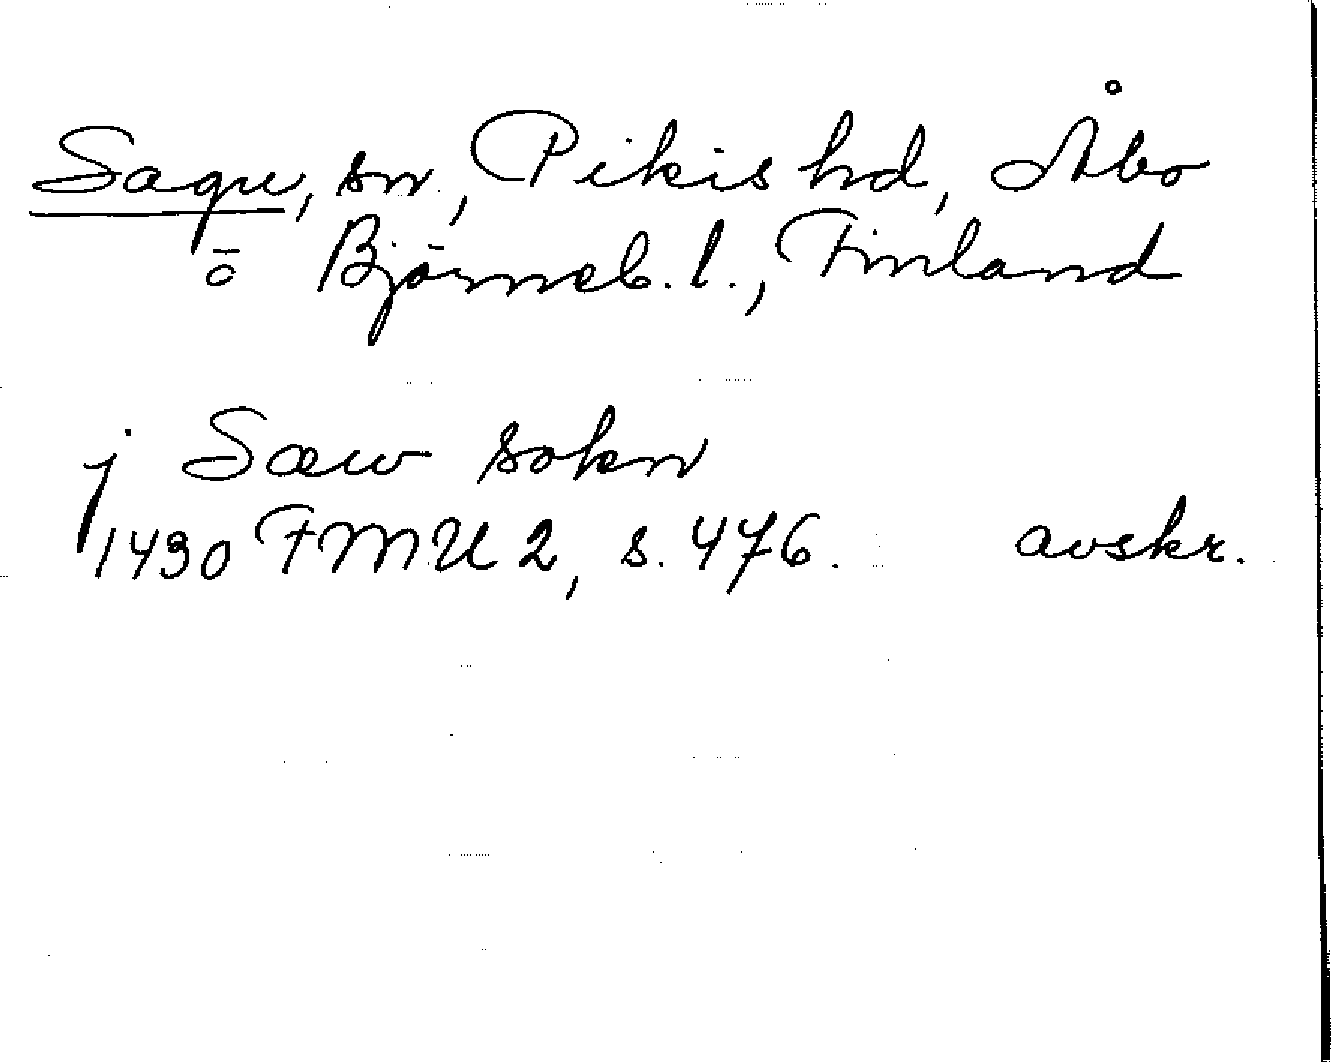 Sagu, sn., Pikis hd, Åbo
ō Björneb. l., Finland
j Sæw sokn
1430 FMU 2, s. 476. avskr.